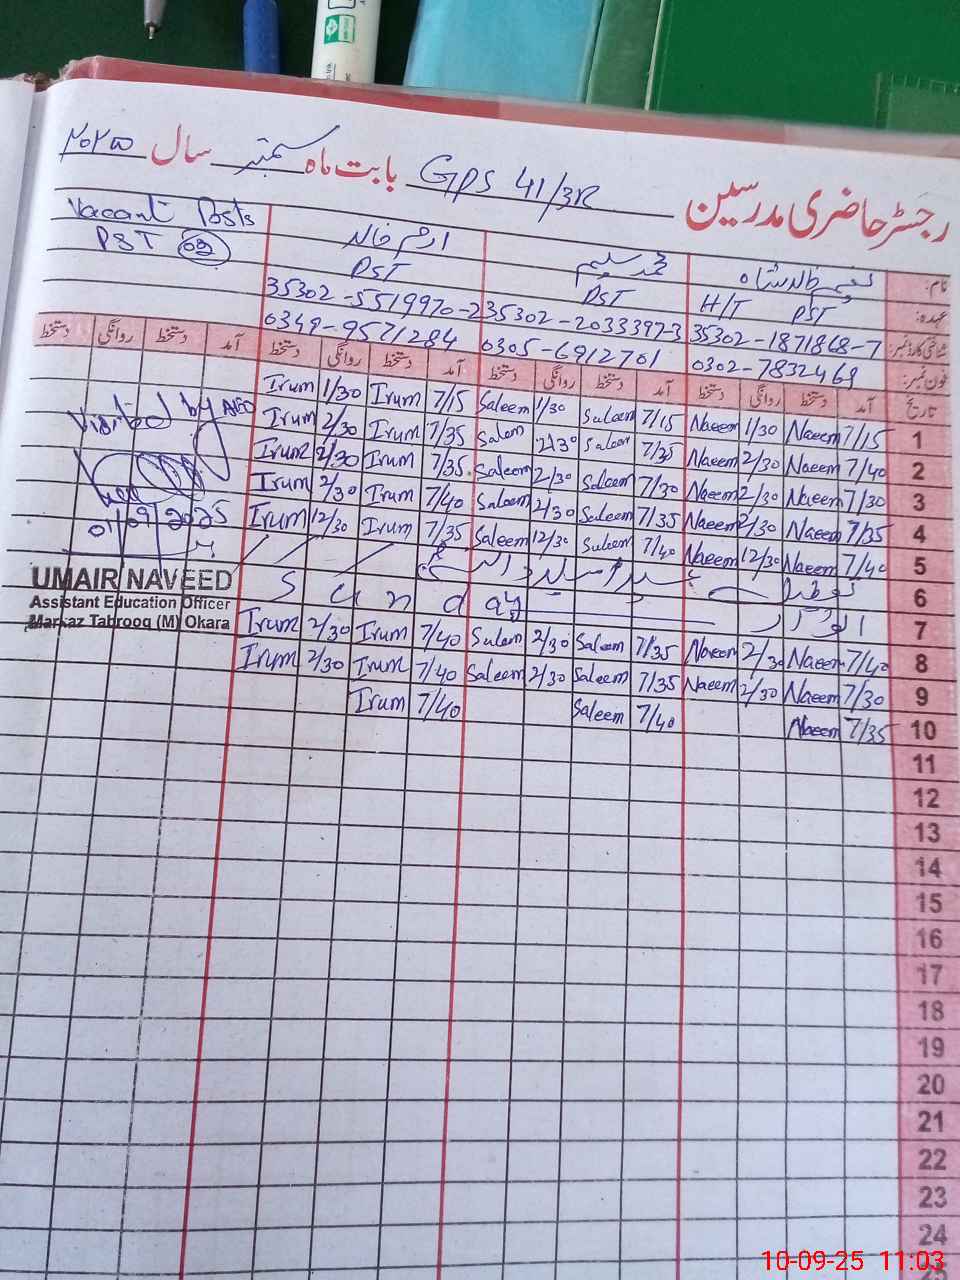 رجسٹر حاضری مدرسین GPS 41/3R بابت ماہ ستمبر سال ۲۰۲۵
نام: نعیم خالد شاہ محمد سلیم ارم خالد Vacant Posts
عہدہ: H/T PST PST PST PST 02
شناختی کارڈ نمبر: 35302-1871868-7 35302-2033397-3 35302-5519970-2
فون نمبر: 0302-7832469 0305-6912701 0349-9571284
تاریخ آمد دستخط روانگی دستخط آمد دستخط روانگی دستخط آمد دستخط روانگی دستخط آمد دستخط روانگی دستخط
1 7/15 Naeem 1/30 Naeem 7/15 Saleem 1/30 Saleem 7/15 Irum 1/30 Irum
2 7/40 Naeem 2/30 Naeem 7/35 Saleem 2/30 Saleem 7/35 Irum 2/30 Irum
3 7/30 Naeem 2/30 Naeem 7/30 Saleem 2/30 Saleem 7/35 Irum 2/30 Irum
4 7/35 Naeem 2/30 Naeem 7/35 Saleem 2/30 Saleem 7/40 Irum 2/30 Irum
5 7/40 Naeem 12/30 Naeem 7/40 Saleem 12/30 Saleem 7/35 Irum 12/30 Irum
6
7 اتوار Sunday
8 7/40 Naeem 2/30 Naeem 7/35 Saleem 2/30 Saleem 7/40 Irum 2/30 Irum
9 7/30 Naeem 2/30 Naeem 7/35 Saleem 2/30 Saleem 7/40 Irum 2/30 Irum
10 7/35 Naeem 7/40 Saleem 7/40 Irum
11
12
13
14
15
16
17
18
19
20
21
22
23
24
25
Visited by AEO
01/09/2025
UMAIR NAVEED
Assistant Education Officer
Markaz Tabrooq (M) Okara
10-09-25 11:03